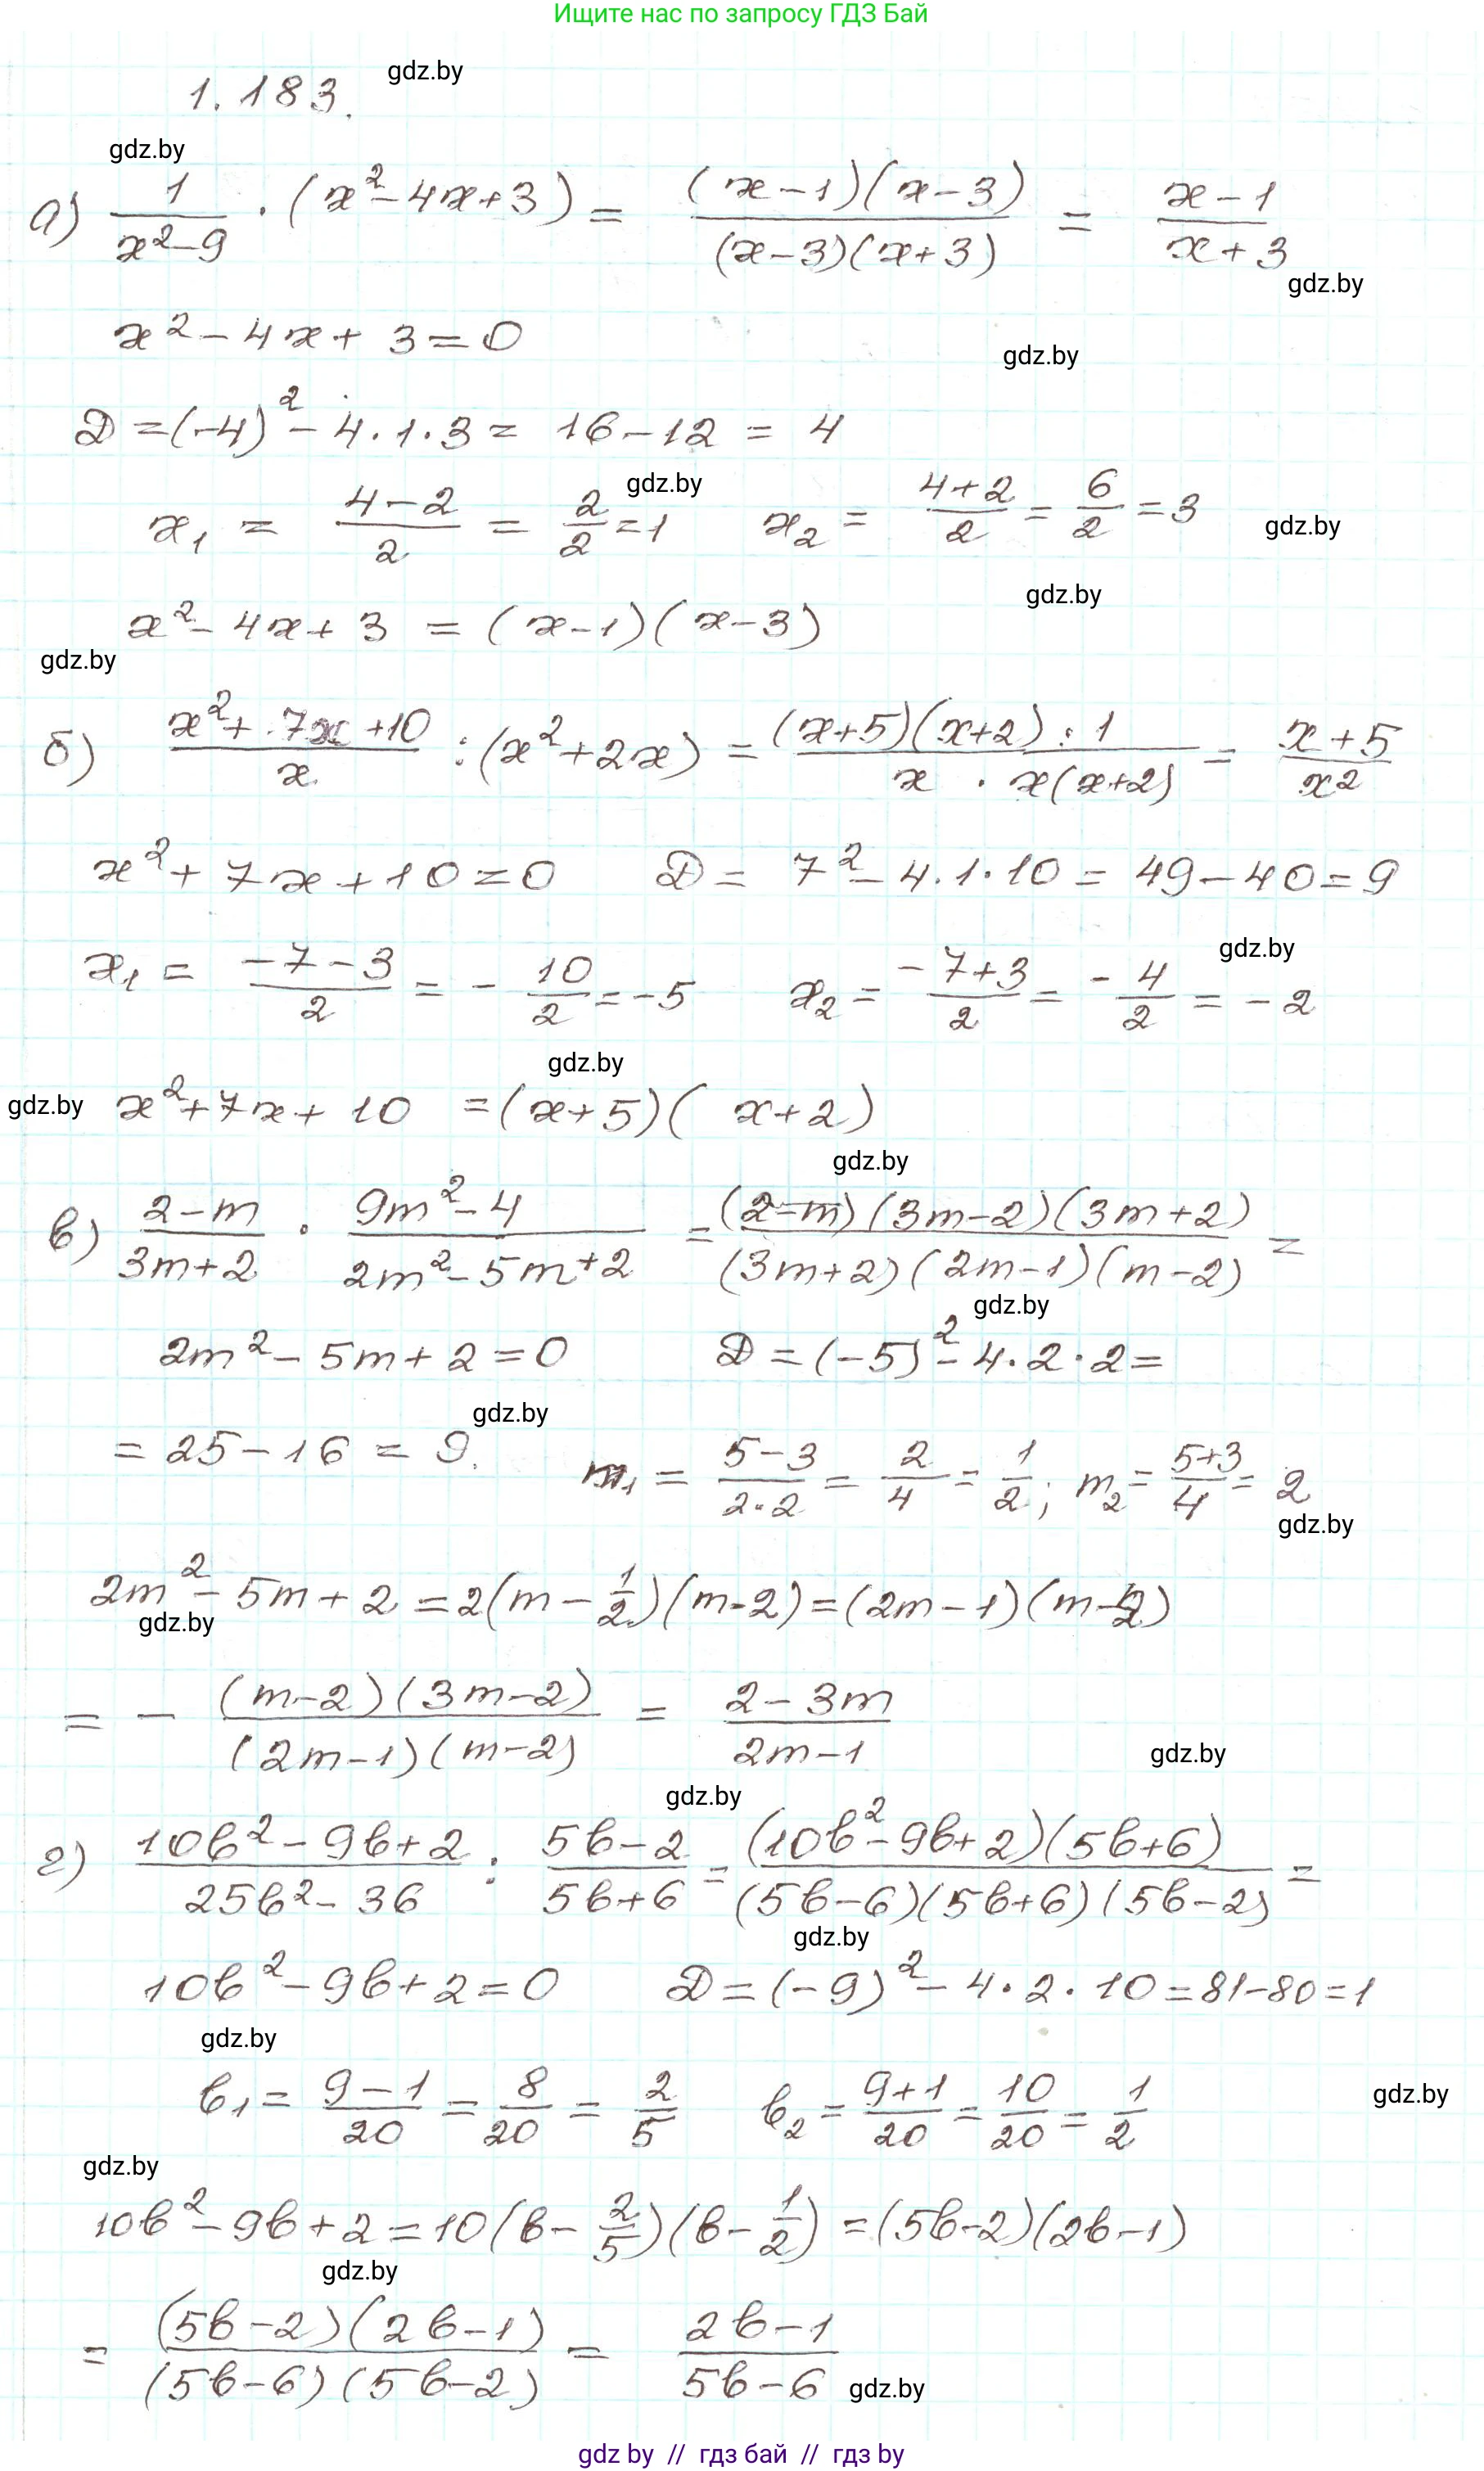 Ищите нас по запросу ГДЗ Бай
1.183.
gdz.by
gdz.by
а) 1/(x²-9) · (x²-4x+3) = (x-1)(x-3)/((x-3)(x+3)) = (x-1)/(x+3)
gdz.by
x²-4x+3=0
gdz.by
D=(-4)²-4·1·3= 16-12 = 4
gdz.by
x₁ = (4-2)/2 = 2/2 =1 x₂ = (4+2)/2 = 6/2 =3
gdz.by
gdz.by
x²-4x+3 = (x-1)(x-3)
gdz.by
б) (x²+7x+10)/x : (x²+2x) = ((x+5)(x+2)·1)/(x · x(x+2)) = (x+5)/x²
x²+7x+10=0 D= 7²-4·1·10= 49-40=9
gdz.by
x₁ = (-7-3)/2 = -10/2 =-5 x₂ = (-7+3)/2 = -4/2 = -2
gdz.by
gdz.by
x²+7x+10 =(x+5)(x+2)
gdz.by
в) (2-m)/(3m+2) · (9m²-4)/(2m²-5m+2) = ((2-m)(3m-2)(3m+2))/((3m+2)(2m-1)(m-2)) =
gdz.by
2m²-5m+2=0 D=(-5)²-4·2·2=
gdz.by
=25-16 = 9. m₁ = (5-3)/(2·2) = 2/4 = 1/2; m₂ = (5+3)/4 = 2
gdz.by
2m²-5m+2=2(m-1/2)(m-2)=(2m-1)(m-2)
gdz.by
= - ((m-2)(3m-2))/((2m-1)(m-2)) = (2-3m)/(2m-1)
gdz.by
gdz.by
г) (10b²-9b+2)/(25b²-36) : (5b-2)/(5b+6) = ((10b²-9b+2)(5b+6))/((5b-6)(5b+6)(5b-2)) =
gdz.by
10b²-9b+2=0 D=(-9)²-4·2·10=81-80=1
gdz.by
b₁= (9-1)/20 = 8/20 = 2/5 b₂ = (9+1)/20 = 10/20 = 1/2
gdz.by
gdz.by
10b²-9b+2=10(b-2/5)(b-1/2)=(5b-2)(2b-1)
gdz.by
= ((5b-2)(2b-1))/((5b-6)(5b-2)) = (2b-1)/(5b-6)
gdz.by
gdz by // гдз бай // гдз by